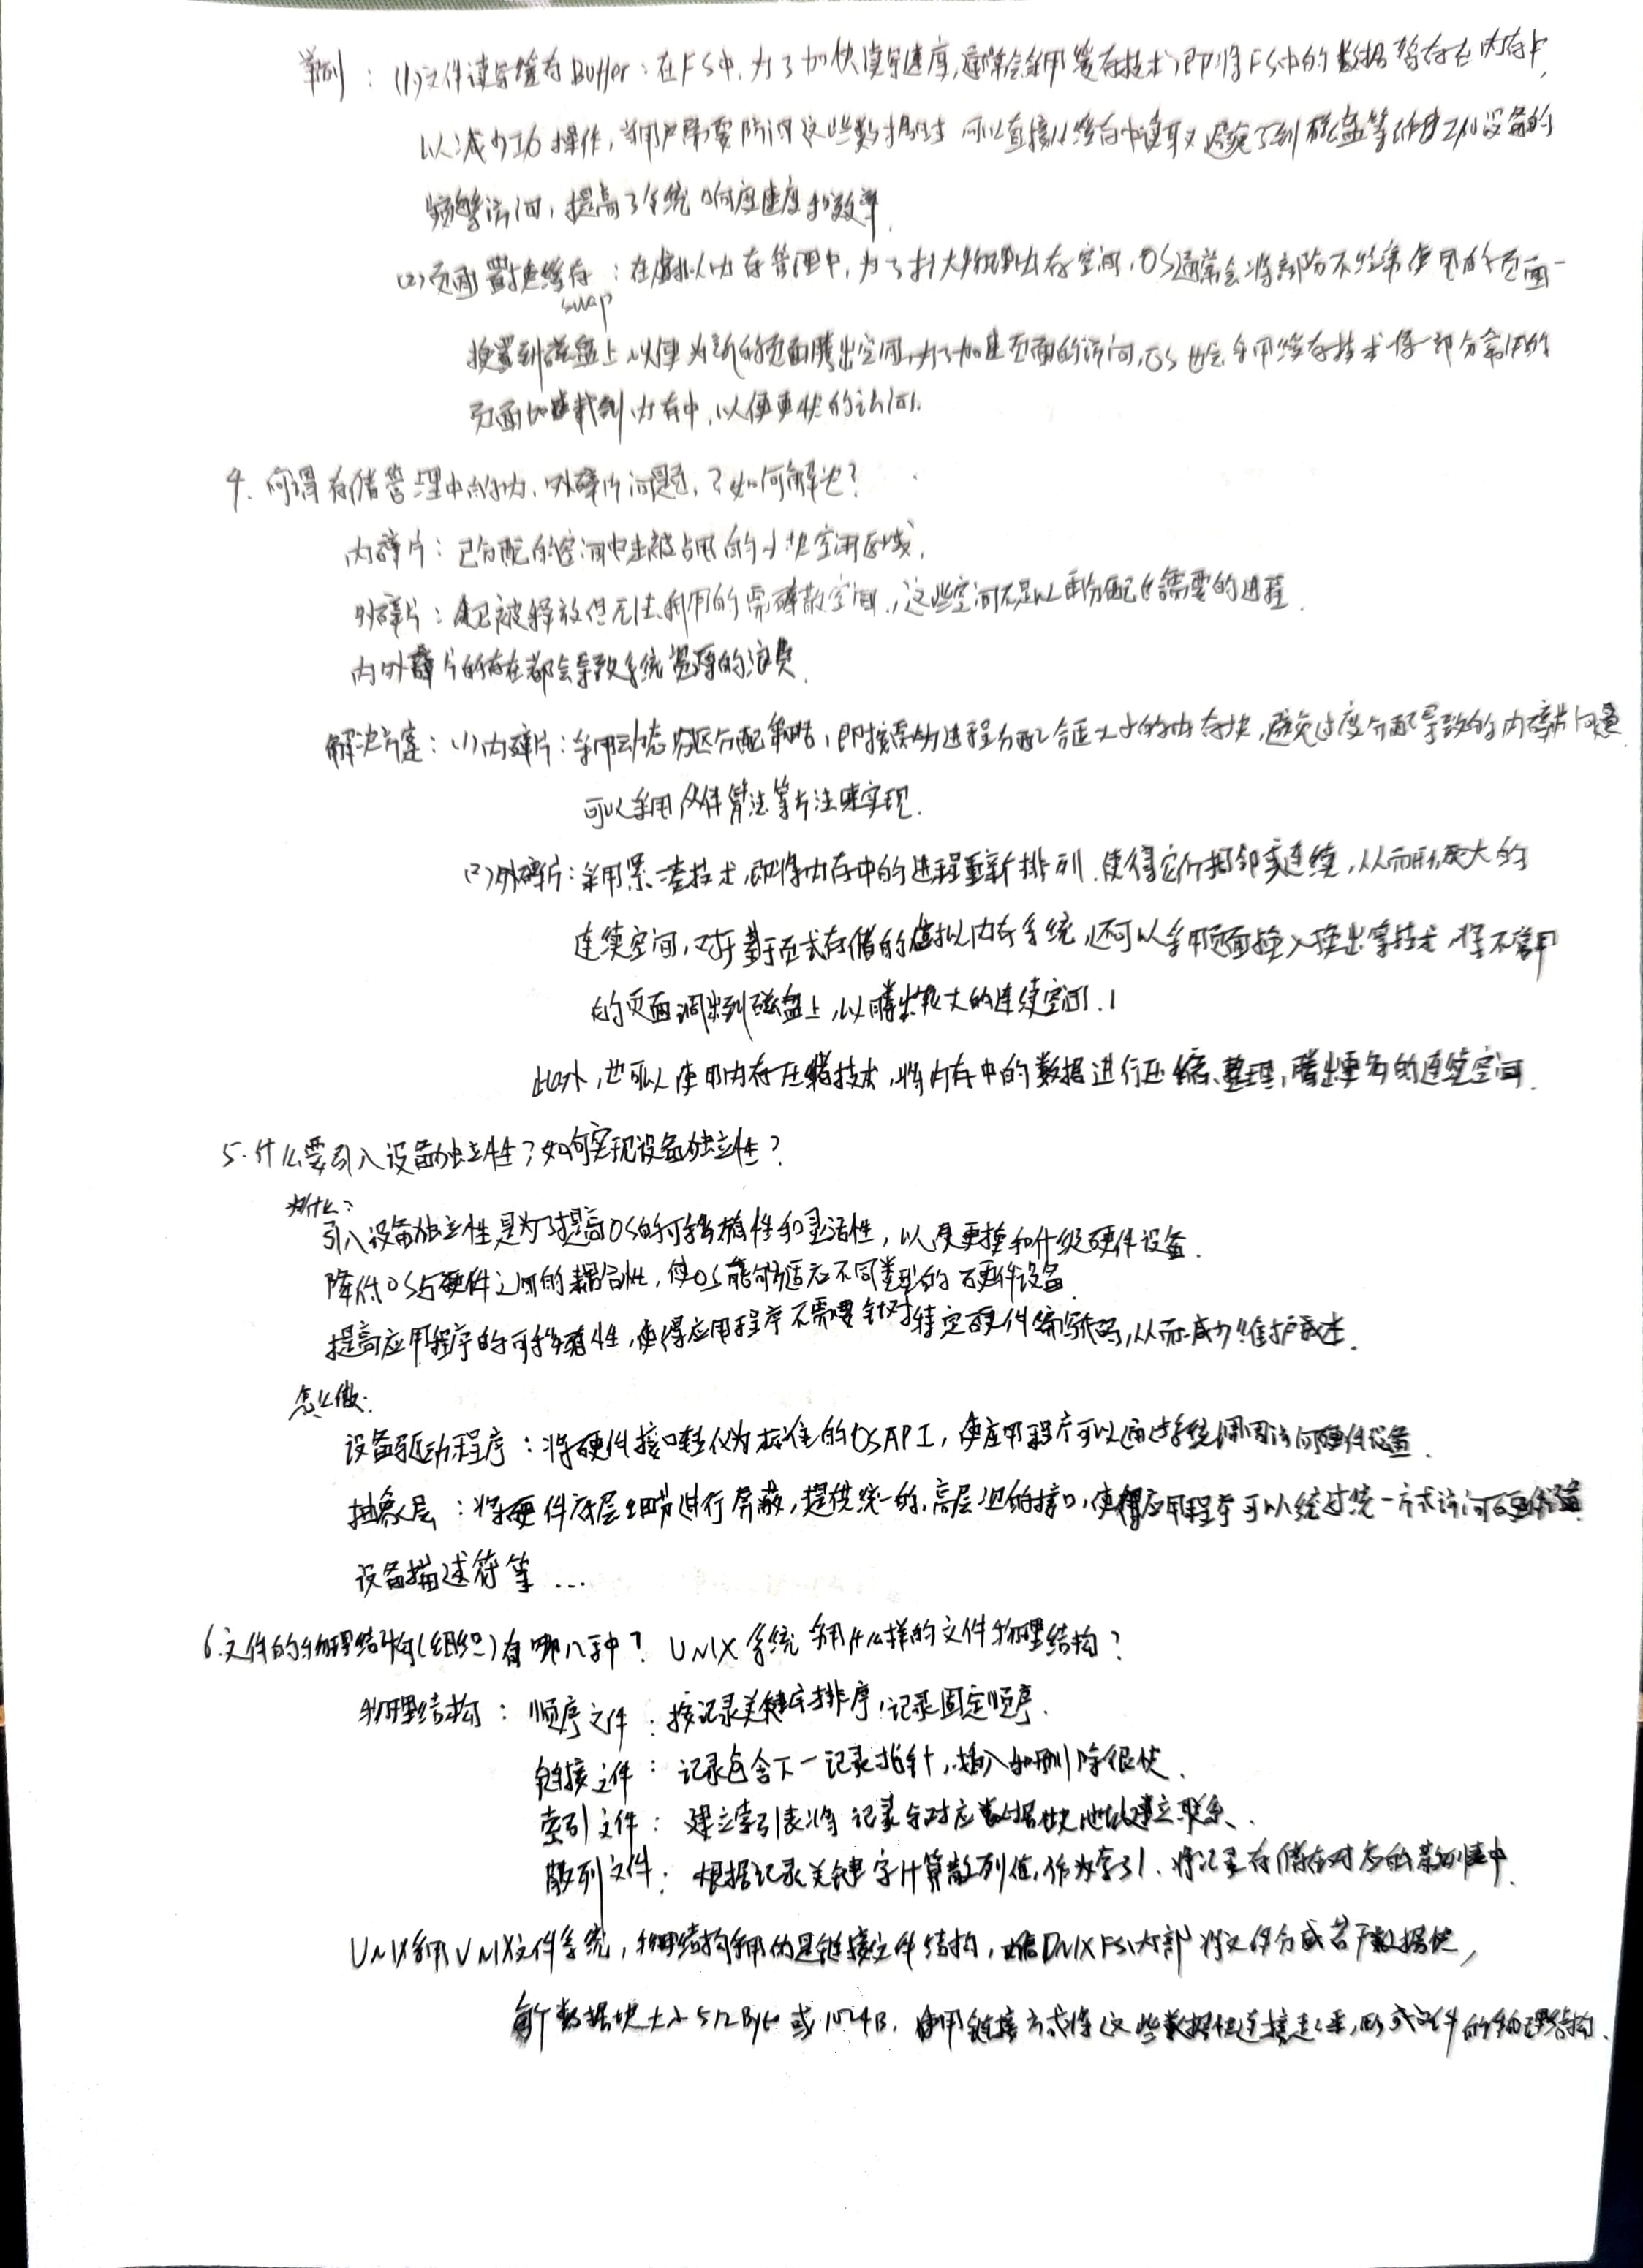 举例：(1)文件读写缓存Buffer：在FS中，为了加快读写速度，通常会采用缓存技术，即将FS中的数据暂存在内存中，
以减少I/O操作，当用户需要访问这些数据时 可以直接从缓存中读取 避免了到磁盘等外部I/O设备的
频繁访问，提高了系统响应速度和效率.
(2)页面置换缓存：在虚拟内存管理中，为了扩大物理内存空间，OS通常会将部分不经常使用的页面
swap
换置到磁盘上，以便为新的页面腾出空间，为了加速页面的访问，OS也会采用缓存技术 将一部分常用的
页面加载到内存中，以便更快的访问.
4. 何谓存储管理中的内、外碎片问题，？如何解决？
内碎片：已分配的空间中未被占用的小块空闲区域.
外碎片：已被释放但无法利用的零碎散空间，这些空间不足以再分配给需要的进程.
内外碎片的存在都会导致系统资源的浪费.
解决方案：(1)内碎片：采用动态分区分配策略，即按需为进程分配合适大小的内存块，避免过度分配导致的内碎片问题
可以采用伙伴算法等方法来实现.
(2)外碎片：采用紧凑技术，即将内存中的进程重新排列，使得它们相邻或连续，从而形成大的
连续空间，对于基于页式存储的虚拟内存系统，还可以采用页面换入换出等技术，将不常用
的页面调出到磁盘上，以腾出较大的连续空间.
此外，也可以使用内存压缩技术，将内存中的数据进行压缩、整理，腾出更多的连续空间.
5.什么要引入设备独立性？如何实现设备独立性？
为什么？
引入设备独立性是为了提高OS的可移植性和灵活性，以便更换和升级硬件设备.
降低OS与硬件之间的耦合性，使OS能够适应不同类型的硬件设备
提高应用程序的可移植性，使得应用程序不需要针对特定硬件编写代码，从而减少维护成本.
怎么做：
设备驱动程序：将硬件接口转化为标准的OS API，使应用程序可以通过系统调用访问硬件设备.
抽象层：将硬件底层细节进行屏蔽，提供统一的，高层次的接口，使得应用程序可以统过统一方式访问硬件设备.
设备描述符等...
6.文件的物理结构(组织)有哪几种？ UNIX系统采用什么样的文件物理结构？
物理结构：顺序文件：按记录关键字排序，记录固定顺序.
链接文件：记录包含下一记录指针，插入和删除很快.
索引文件：建立索引表将记录与对应数据块地址建立联系.
散列文件：根据记录关键字计算散列值，作为索引，将记录存储在对应的散列桶中.
UNIX采用UNIX文件系统，物理结构采用的是链接文件结构，UNIX FS内部将文件分成若干数据块，
每个数据块大小512Byte或1024B，使用链接方式将这些数据块连接起来，形成文件的物理结构.